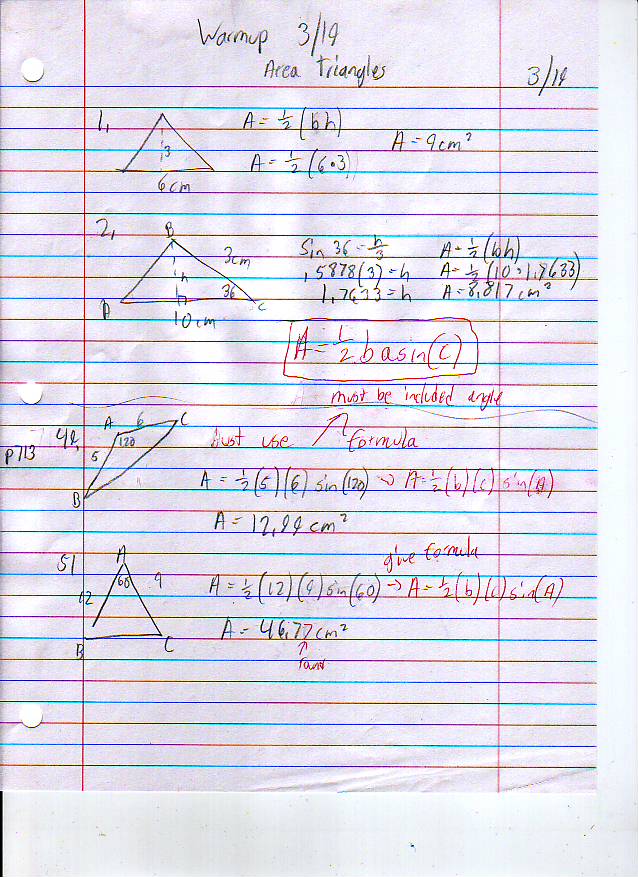 Warmup 3/19
Area Triangles
3/19
1,
3
6cm
A = 1/2 (bh)
A = 1/2 (6·3)
A = 9cm²
2,
B
3cm
h
36
A
C
10cm
Sin 36 = h/3
,5878(3) = h
1,7633 = h
A = 1/2 (bh)
A = 1/2 (10·1,7633)
A = 8,817 cm²
A = 1/2 b a sin(C)
must be included angle
p713
49,
A
6
C
120
5
B
Just use formula
A = 1/2 (5)(6) sin(120) → A = 1/2 (b)(c) sin(A)
A = 12,99 cm²
51
A
60
9
12
B
C
give formula
A = 1/2 (12)(9) sin(60) → A = 1/2 (b)(c) sin(A)
A = 46,77cm²
round